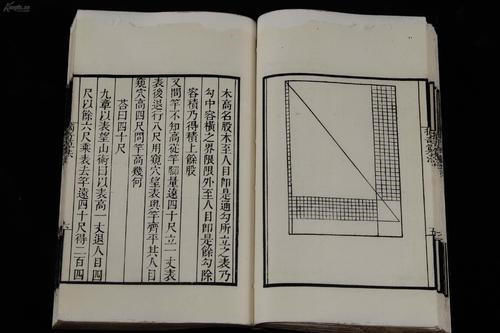 木高名股木至人目卽是遠勾所立之表乃
勾中容橫之界限限外至人目卽是餘勾除
容積乃得積上餘股
又問竿不知高從竿脚量遠四十尺立一丈表
表後退行八尺用窺穴望表與竿齊平其人目
窺穴高四尺問竿高幾何
荅曰四十尺
九章以表望山術曰以表高一丈退人目四
尺以餘六尺乘表去竿遠四十尺得二百四